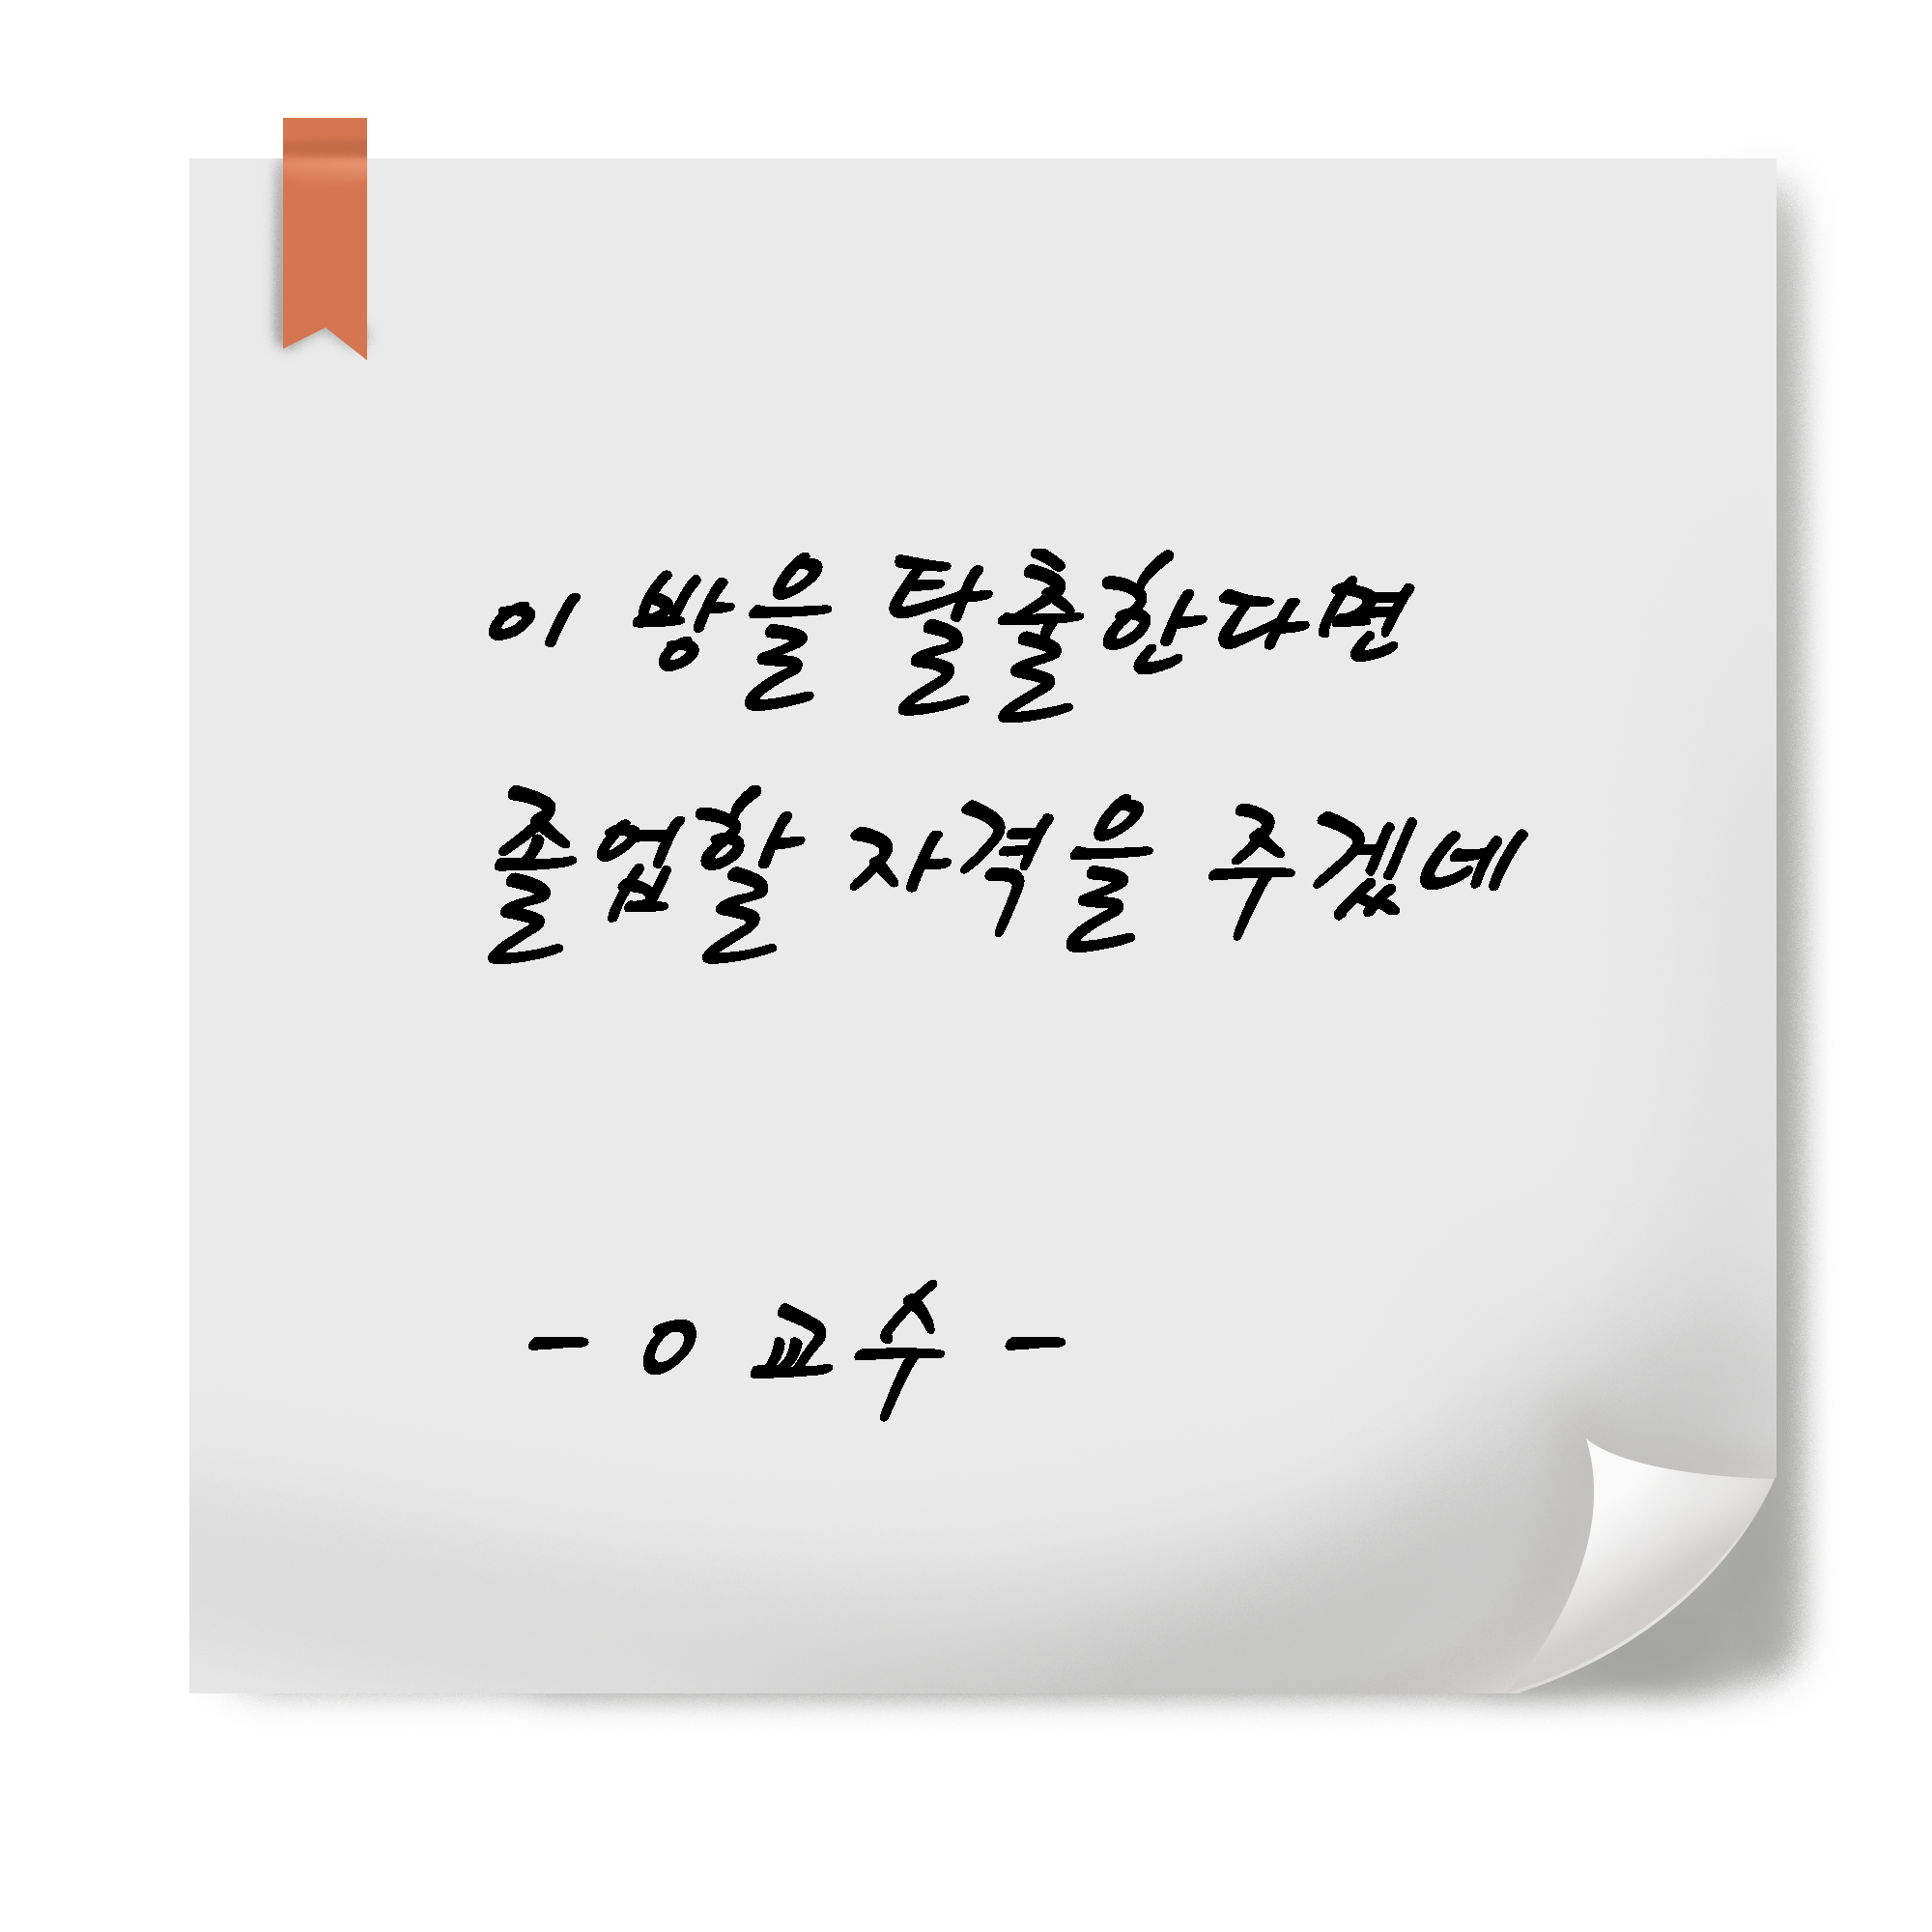 이 방을 탈출한다면
졸업할 자격을 주겠네
- O 교수 -